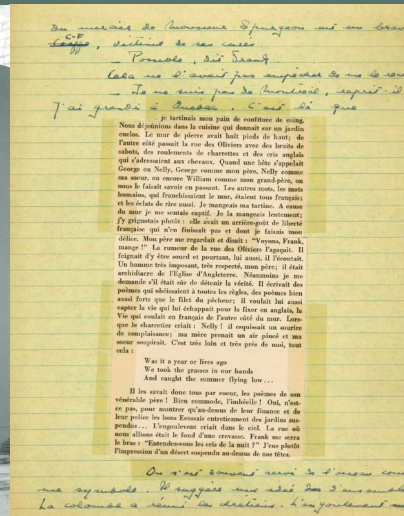 du mercier de Monsieur Spurgeon est un brave
C-F
, victime de ses cures
– Pomole, dit Frank
Cela ne l'avait pas empêcher de me le
– Je ne suis pas de Montréal, reprit-il
J'ai grandi à Québec. C'est là que
je tartinais mon pain de confiture de coing.
Nous déjeûnions dans la cuisine qui donnait sur un jardin
enclos. Le mur de pierre avait huit pieds de haut; de
l'autre côté passait la rue des Oliviers avec des bruits de
sabots, des roulements de charrettes et des cris anglais
qui s'adressaient aux chevaux. Quand une bête s'appelait
George ou Nelly, George comme mon père, Nelly comme
ma soeur, ou encore William comme mon grand-père, on
nous le faisait savoir en passant. Les autres mots, les mots
humains, qui franchissaient le mur, étaient tous français;
et les éclats de rire aussi. Je mangeais ma tartine. A cause
du mur je me sentais captif. Je la mangeais lentement;
j'y grignotais plutôt : elle avait un arrière-goût de liberté
française qui n'en finissait pas et dont je faisais mon
délice. Mon père me regardait et disait : "Voyons, Frank,
mange !" La rumeur de la rue des Oliviers l'agaçait. Il
feignait d'y être sourd et pourtant, lui aussi, il l'écoutait.
Un homme très imposant, très respecté, mon père; il était
archidiacre de l'Eglise d'Angleterre. Néanmoins je me
demande s'il était sûr de détenir la vérité. Il écrivait des
poèmes qui obéissaient à toutes les règles, des poèmes bien
aussi forts que le filet du pêcheur; il voulait lui aussi
capter la vie qui lui échappait pour la fixer en anglais, la
Vie qui coulait en français de l'autre côté du mur. Lors-
que le charretier criait : Nelly ! il esquissait un sourire
de complaisance; ma mère prenait un air pincé et ma
soeur soupirait. C'est très loin et très près de moi, tout
cela :
Was it a year or lives ago
We took the grasses in our hands
And caught the summer flying low...
Il les savait donc tous par coeur, les poèmes de son
vénérable père ! Bien commode, l'imbécile ! Oui, n'est-
ce pas, pour montrer qu'au-dessus de leur finance et de
leur police les bons Ecossais entretiennent des jardins sus-
pendus... L'engoulevent criait dans le ciel. La rue où
nous allions était le fond d'une crevasse. Frank me serra
le bras : "Entendez-vous les cris de la nuit ?" J'eus plutôt
l'impression d'un désert suspendu au-dessus de nos têtes.
On s'est souvent servi de l'oiseau com
me symbole. Il suggère une idée
La colombe a réuni les chrétiens. L'engoulevent